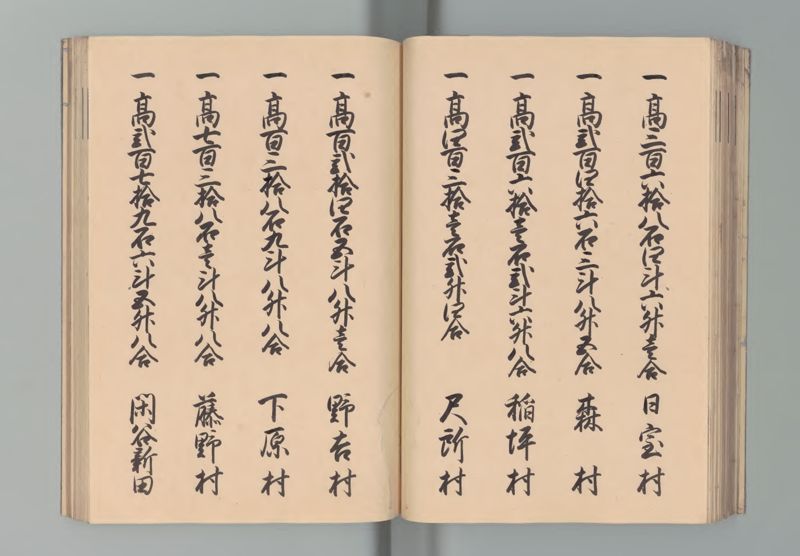 一髙三百六拾八石四斗六升壱合 日室村
一髙弐百四拾六石三斗八升五合 森村
一髙弐百六拾壱石弐斗六升八合 稲坪村
一髙四百三拾壱石弐升四合 尺所村
一髙百弐拾四石五斗八升壱合 野吉村
一髙百三拾八石九斗八升八合 下原村
一髙七百三拾八石壱斗八升八合 藤野村
一髙弐百七拾九石六斗五升八合 閑谷新田